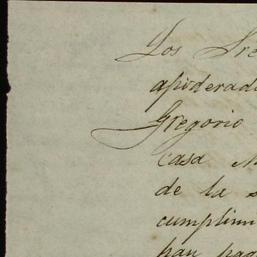 Los Sre
apoderad
Gregorio
casa M
de la s
cumplim
han pag